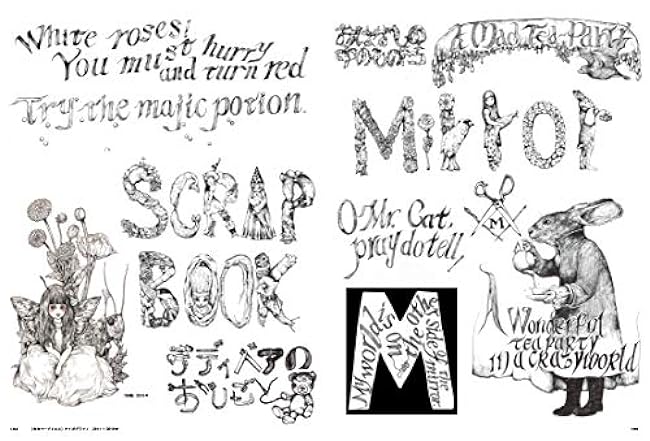 White roses!
You must hurry
and turn red
Try the majic potion.
SCRAP
BOOK
テディベアの
おじさん
A Mad Tea-Party
Mirror
O Mr. Cat,
pray do tell,
M
My world is on
the other side of the mirror.
A Wonderful
tea party
in a crazy world